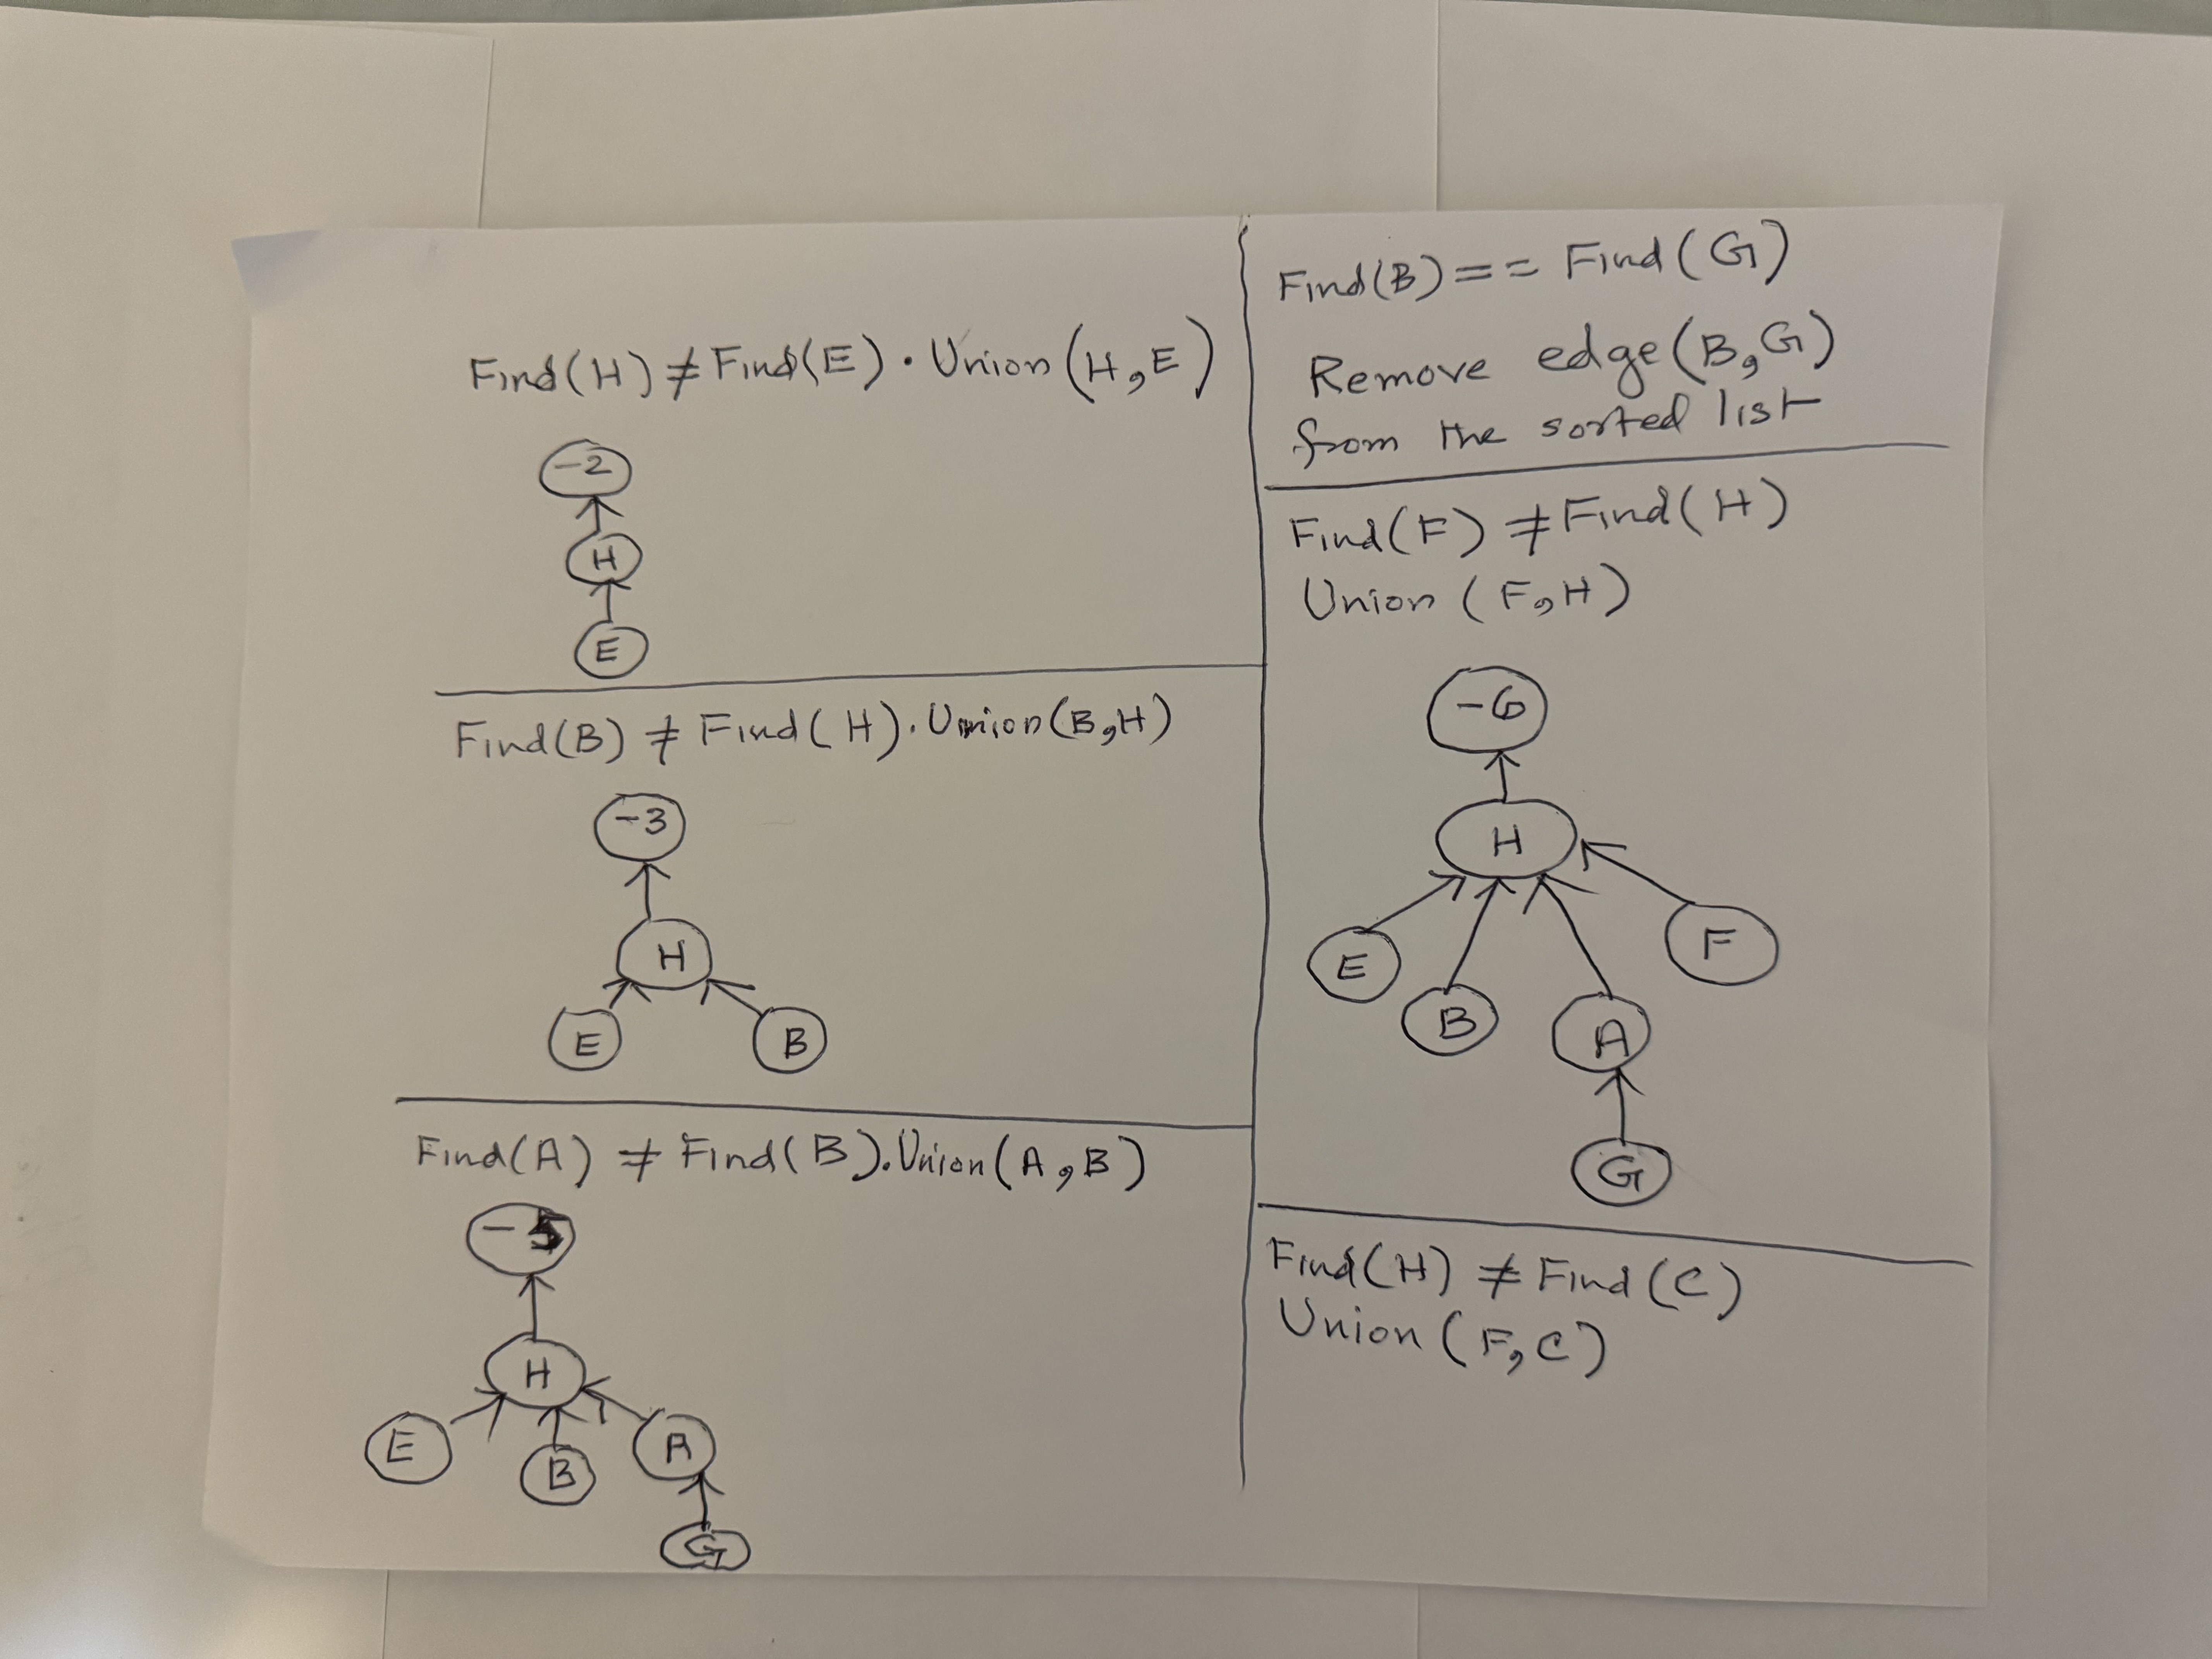 Find(H) ≠ Find(E) . Union(H,E)
-2
H
E
Find(B) ≠ Find(H). Union(B,H)
-3
H
E
B
Find(A) ≠ Find(B). Union(A,B)
-5
H
E
B
A
G
Find(B) == Find(G)
Remove edge(B,G)
from the sorted list
Find(F) ≠ Find(H)
Union (F,H)
-6
H
E
B
A
F
G
Find(H) ≠ Find(C)
Union (F,C)